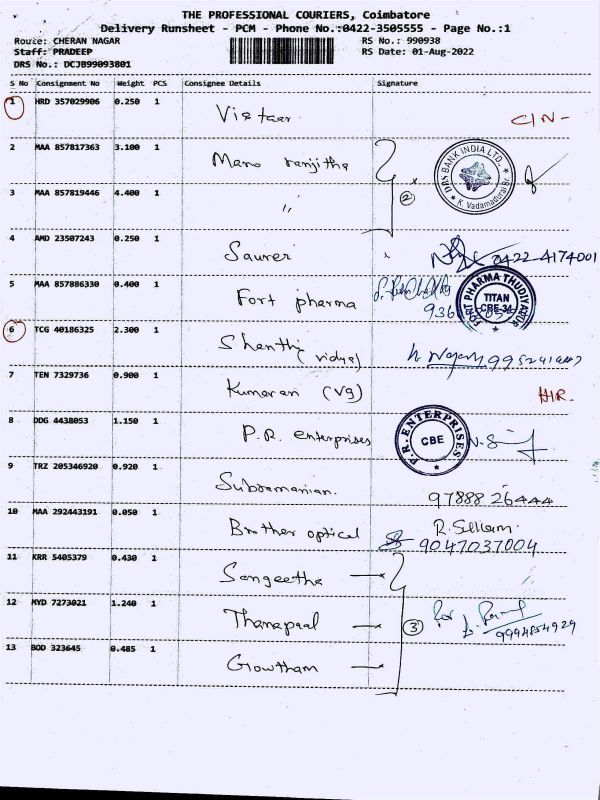 THE PROFESSIONAL COURIERS, Coimbatore
Delivery Runsheet - PCM - Phone No.:0422-3505555 - Page No.:1
Route: CHERAN NAGAR RS No.: 990938
Staff: PRADEEP RS Date: 01-Aug-2022
DRS No.: DCJB99093801
S No Consignment No Weight PCS Consignee Details Signature
1 HRD 357029906 0.250 1 Vistaar C/N-
2 MAA 857817363 3.100 1 Mano ranjitha DBS BANK INDIA LTD., K. Vadamadurai Br.
3 MAA 857819446 4.400 1 〃 2
4 AMD 23507243 0.250 1 Saurer 0422-4174001
5 MAA 857886330 0.400 1 Fort pharma 936 FORT PHARMA THUDIYALUR TITAN CBE-34
6 TCG 40186325 2.300 1 Shanthi (vidya)
7 TEN 7329736 0.900 1 Kumaran (VG) HIR.
8 DDG 4438053 1.150 1 P.R. enterprises P.R. ENTERPRISES CBE
9 TRZ 205346920 0.920 1 Subramanian. 97888 26444
10 MAA 292443191 0.050 1 Brother optical R. Sellam.
9047037004
11 KRR 5405379 0.430 1 Sangeetha
12 MYD 7273021 1.240 1 Thanapaal 3 for
9994854929
13 BOD 323645 0.485 1 Gowtham